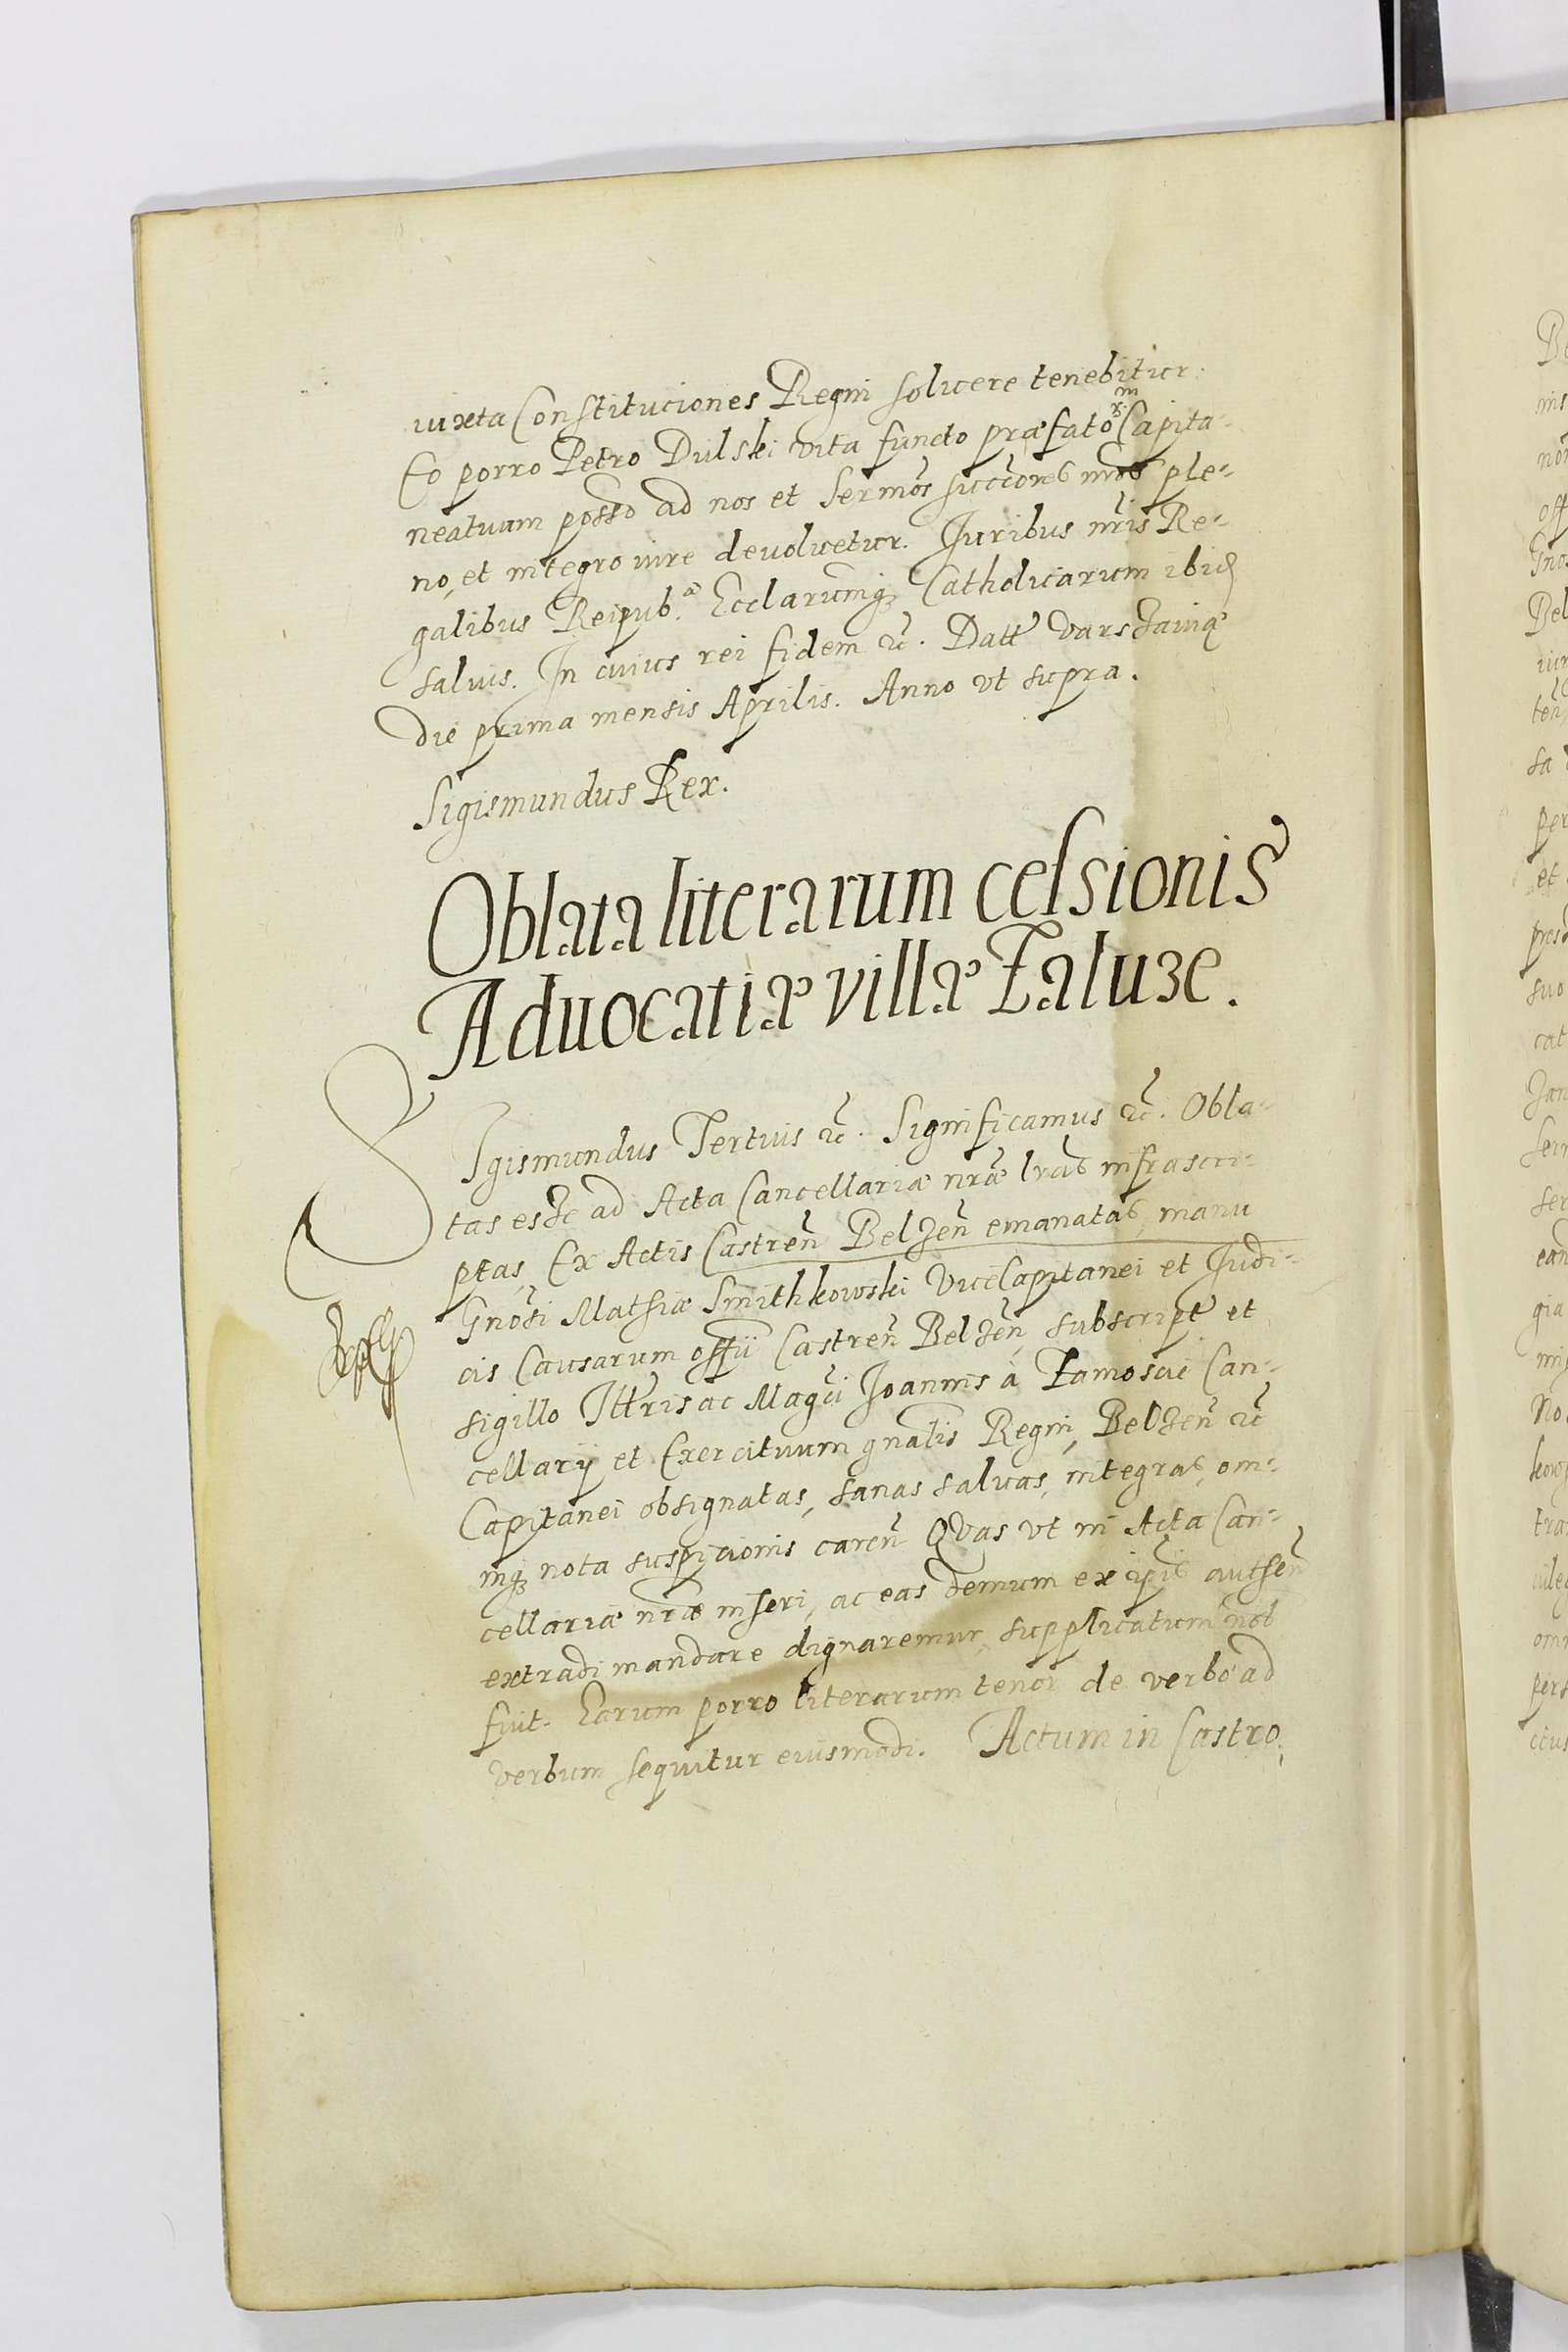 iuxta Constituciones Regni soluere tenebitur.
Eo porro Petro Dulski vita functo præfatorum Capita-
neatuum posso ad nos et Sermos succores nros ple-
no, et integro iure deuoluetur. Juribus nris Re-
galibus Reipub.ᵃ Ecclarumqꝫ Catholicarum ibid
saluis. In cuius rei fidem ꝛc. Datt Varszauiæ
die prima mensis Aprilis. Anno vt supra.
Sigismundus Rex.
Oblata literarum cessionis
Aduocatiæ villæ Zaluze.
SIgismundus Tertius ꝛc. Significamus ꝛc. Obla-
tas esse ad Acta Cancellariæ nræ lras infrascri-
ptas, Ex Actis Castren̄ Belzen̄ emanatas, manu
Gnosi Mathiæ Smithkowski ViceCapitanei et Judi-
cis Causarum offii Castren̄ Belzen̄, subscript et
sigillo Illris ac Magci Joannis à Zamoscie Can-
cellarij et Exercituum gnalis Regni, Belzen̄ ꝛc
Capitanei obsignatas, sanas saluas, integras, om-
niqꝫ nota suspicionis caren̄ Quas vt in Acta Can-
cellariæ nræ inseri, ac eas demum ex ipis authen̄
extradi mandare dignaremur, supplicatum nob
fuit. Earum porro literarum tenor de verbo ad
verbum sequitur eiusmodi. Actum in Castro